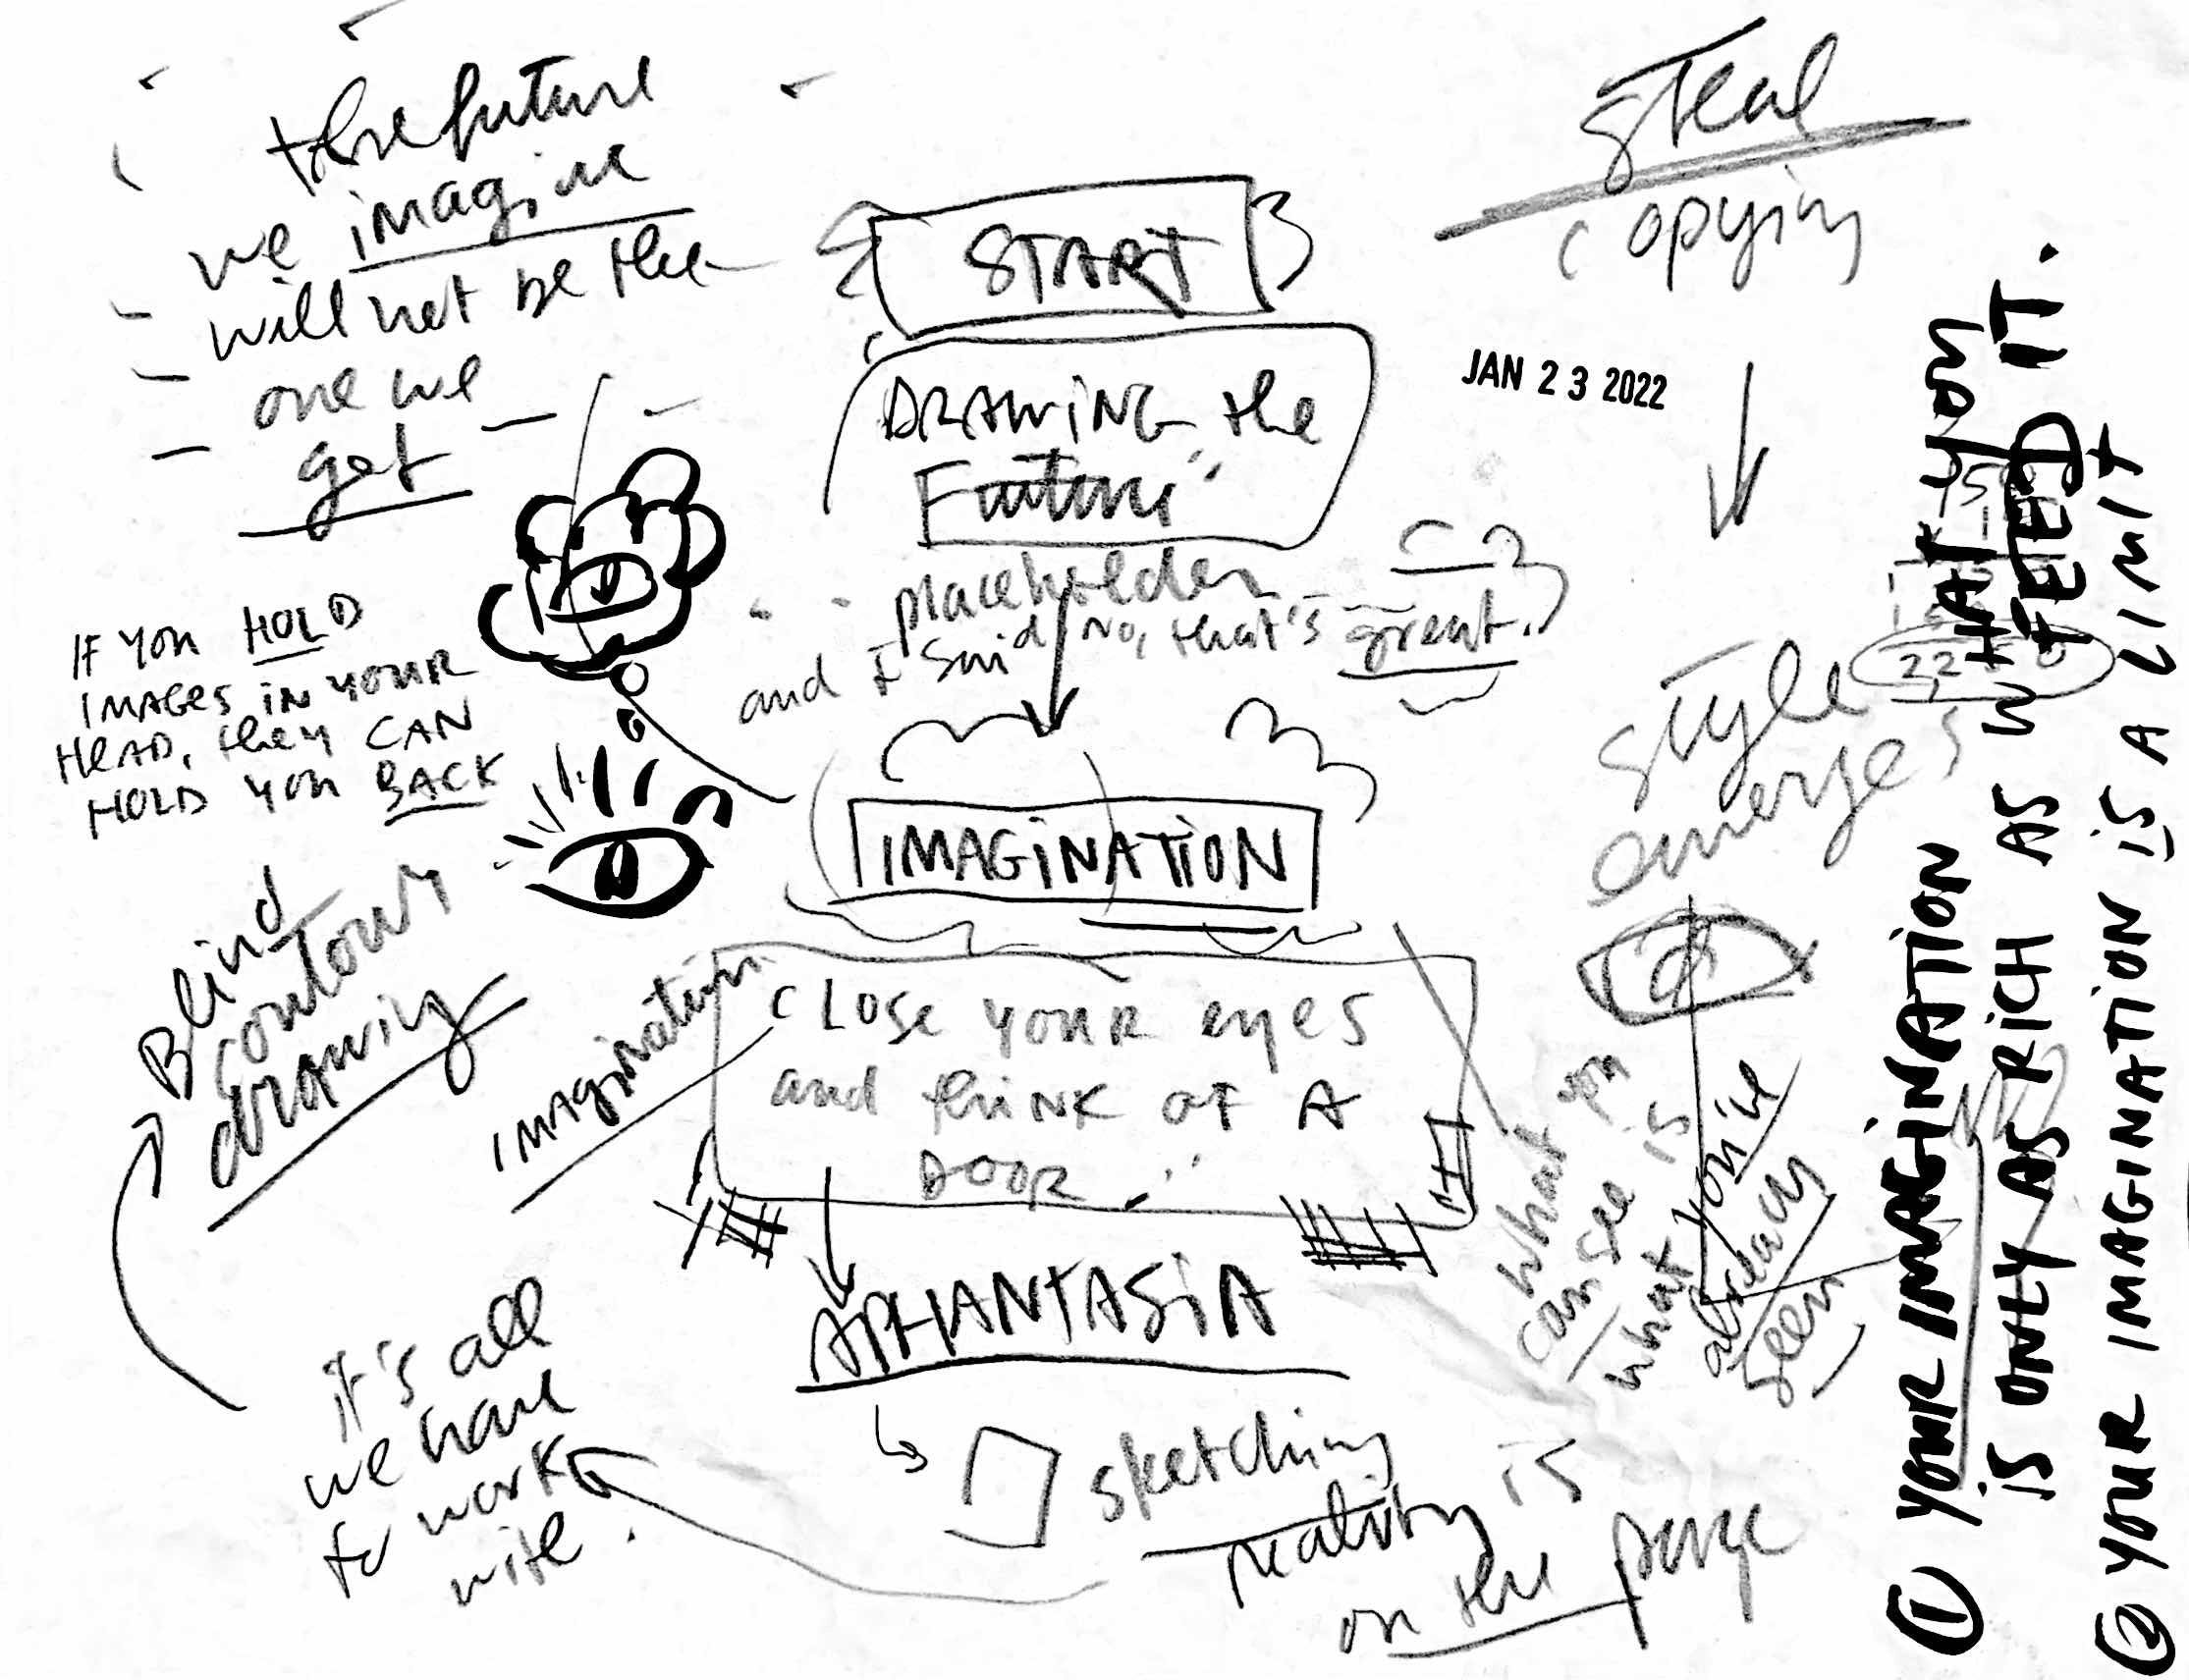 the future
we imagine
will not be the
one we
get
START
DRAWING the
Future"
placeholder
and I said No, that's great.
steal
copying
JAN 23 2022
style
emerges
IF YOU HOLD
IMAGES IN YOUR
HEAD, they CAN
HOLD YOU BACK
IMAGINATION
Blind
contour
drawing
IMAgination
CLOSE YOUR eyes
and thiNK OF A
DOOR
APHANTASIA
sketching
reality is
on the page
it's all
we have
to work
with.
what you
can see is
what you've
already
seen
① YOUR IMAGINATION
IS ONLY AS RICH AS WHAT YOU
FEED IT.
② YOUR IMAGINATION IS A LIMIT